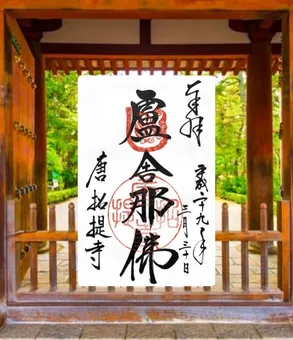 奉拝
平成二十九年
三月三十日
盧舎那佛
唐招提寺